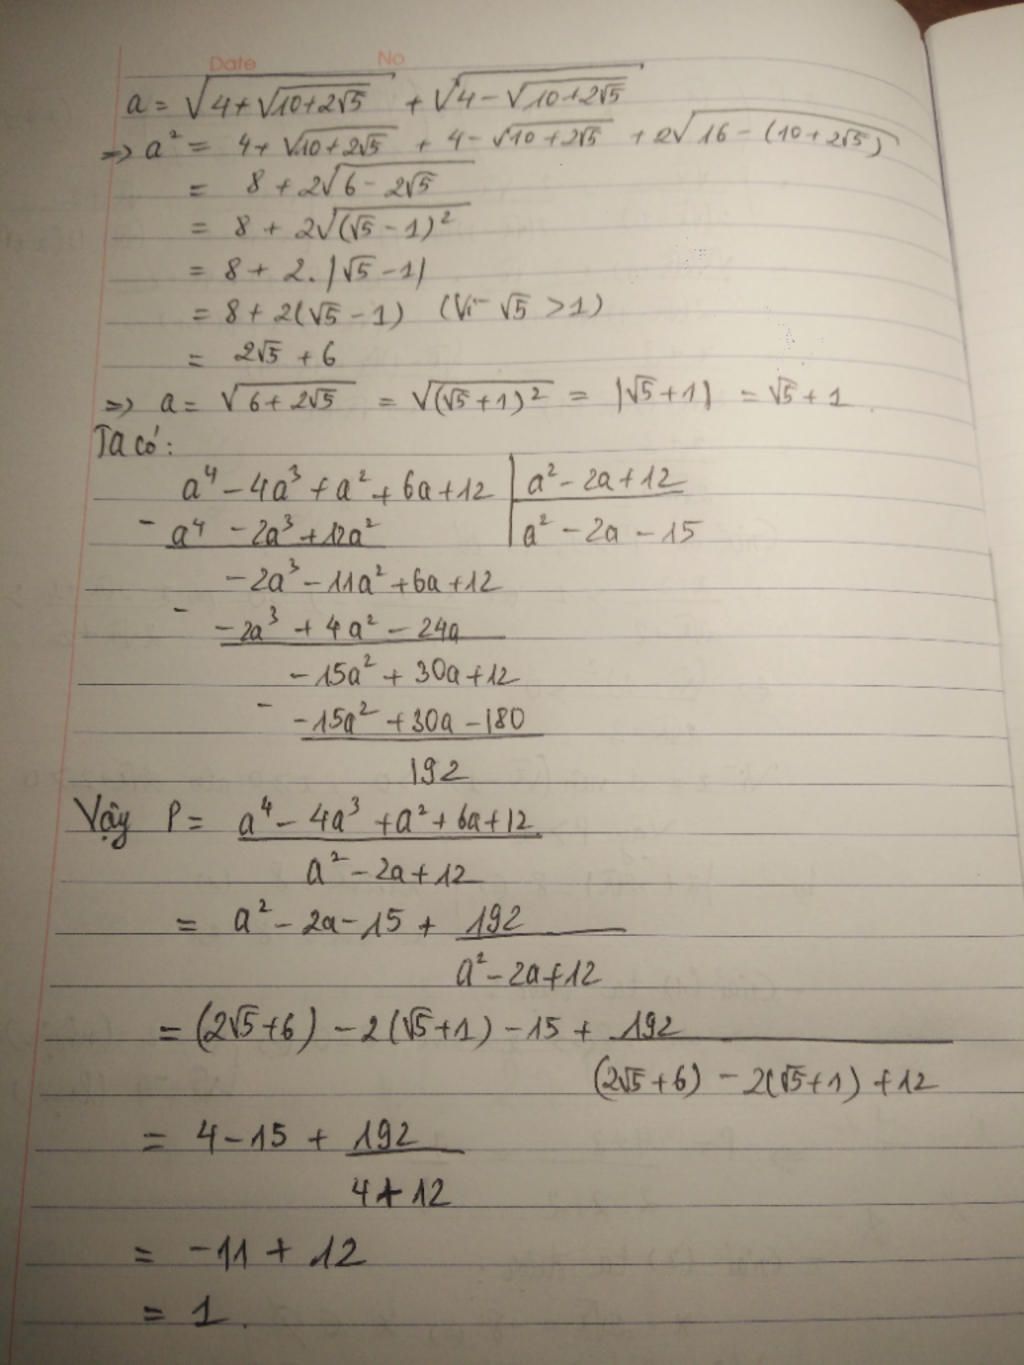 Date No
a = √(4+√(10+2√5)) + √(4-√(10+2√5))
=> a² = 4+√(10+2√5) + 4-√(10+2√5) + 2√(16-(10+2√5))
= 8 + 2√(6-2√5)
= 8 + 2√((√5-1)²)
= 8 + 2.|√5-1|
= 8 + 2(√5-1) (Vì √5 > 1)
= 2√5 + 6
=> a = √(6+2√5) = √((√5+1)²) = |√5+1| = √5+1.
Ta có:
a⁴ - 4a³ + a² + 6a + 12 | a² - 2a + 12
- a⁴ - 2a³ + 12a² | a² - 2a - 15
-2a³ - 11a² + 6a + 12
- -2a³ + 4a² - 24a
-15a² + 30a + 12
- -15a² + 30a - 180
192
Vậy P = a⁴ - 4a³ + a² + 6a + 12
a² - 2a + 12
= a² - 2a - 15 + 192
a² - 2a + 12
= (2√5+6) - 2(√5+1) - 15 + 192
(2√5+6) - 2(√5+1) + 12
= 4 - 15 + 192
4 + 12
= -11 + 12
= 1.